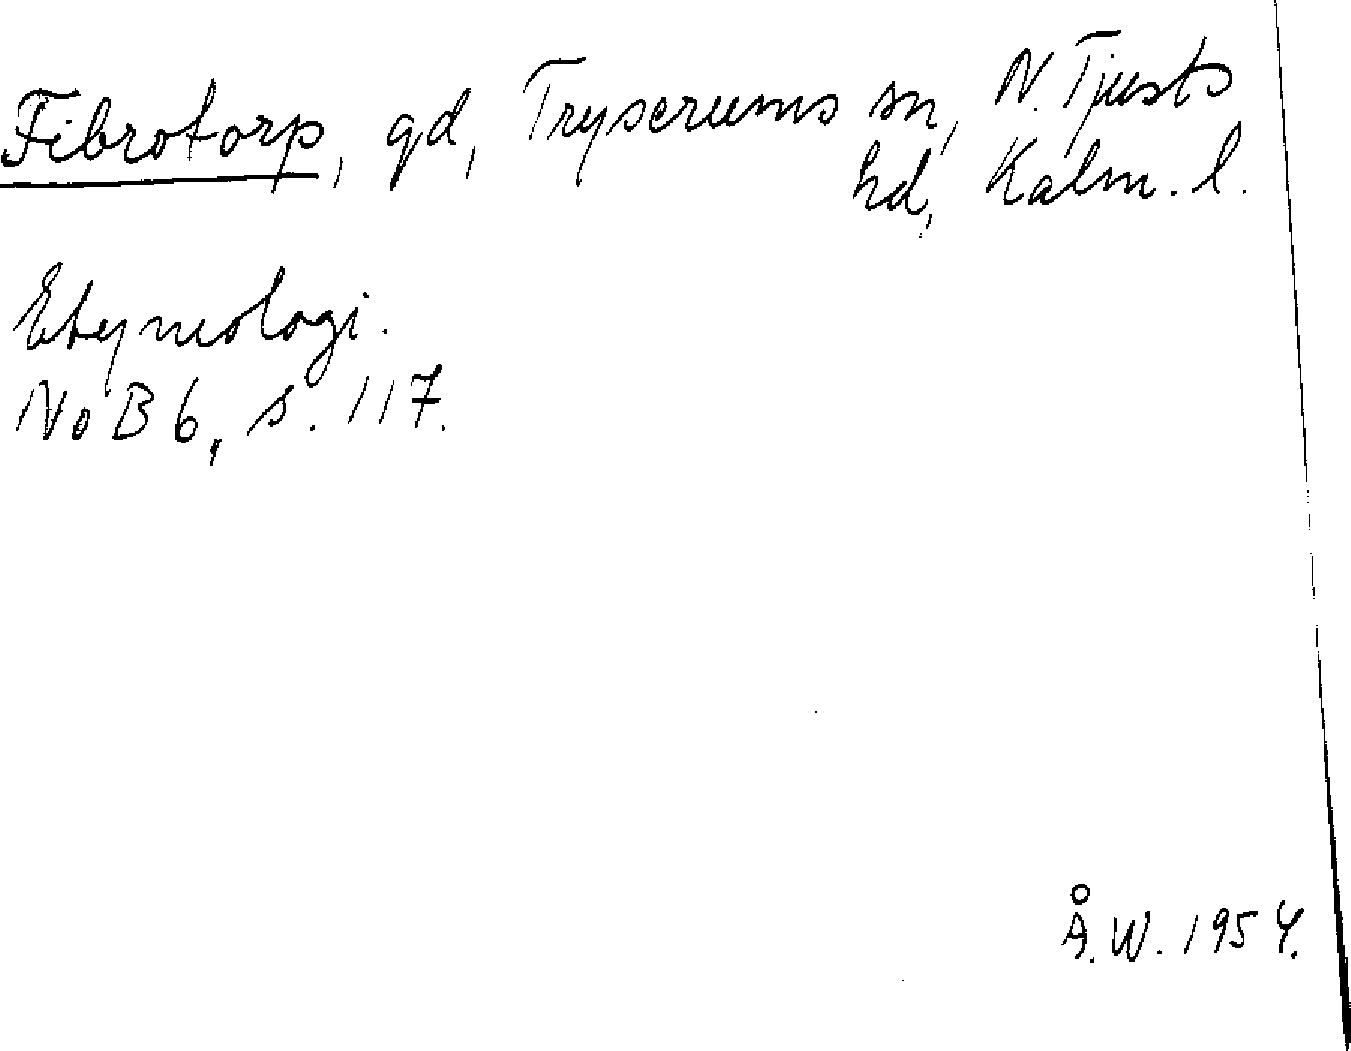 Fibrotorp, gd, Tryserums sn, N. Tjusts
hd, Kalm. l.
Etymologi.
NoB 6, s. 117.
Å. W. 1954.